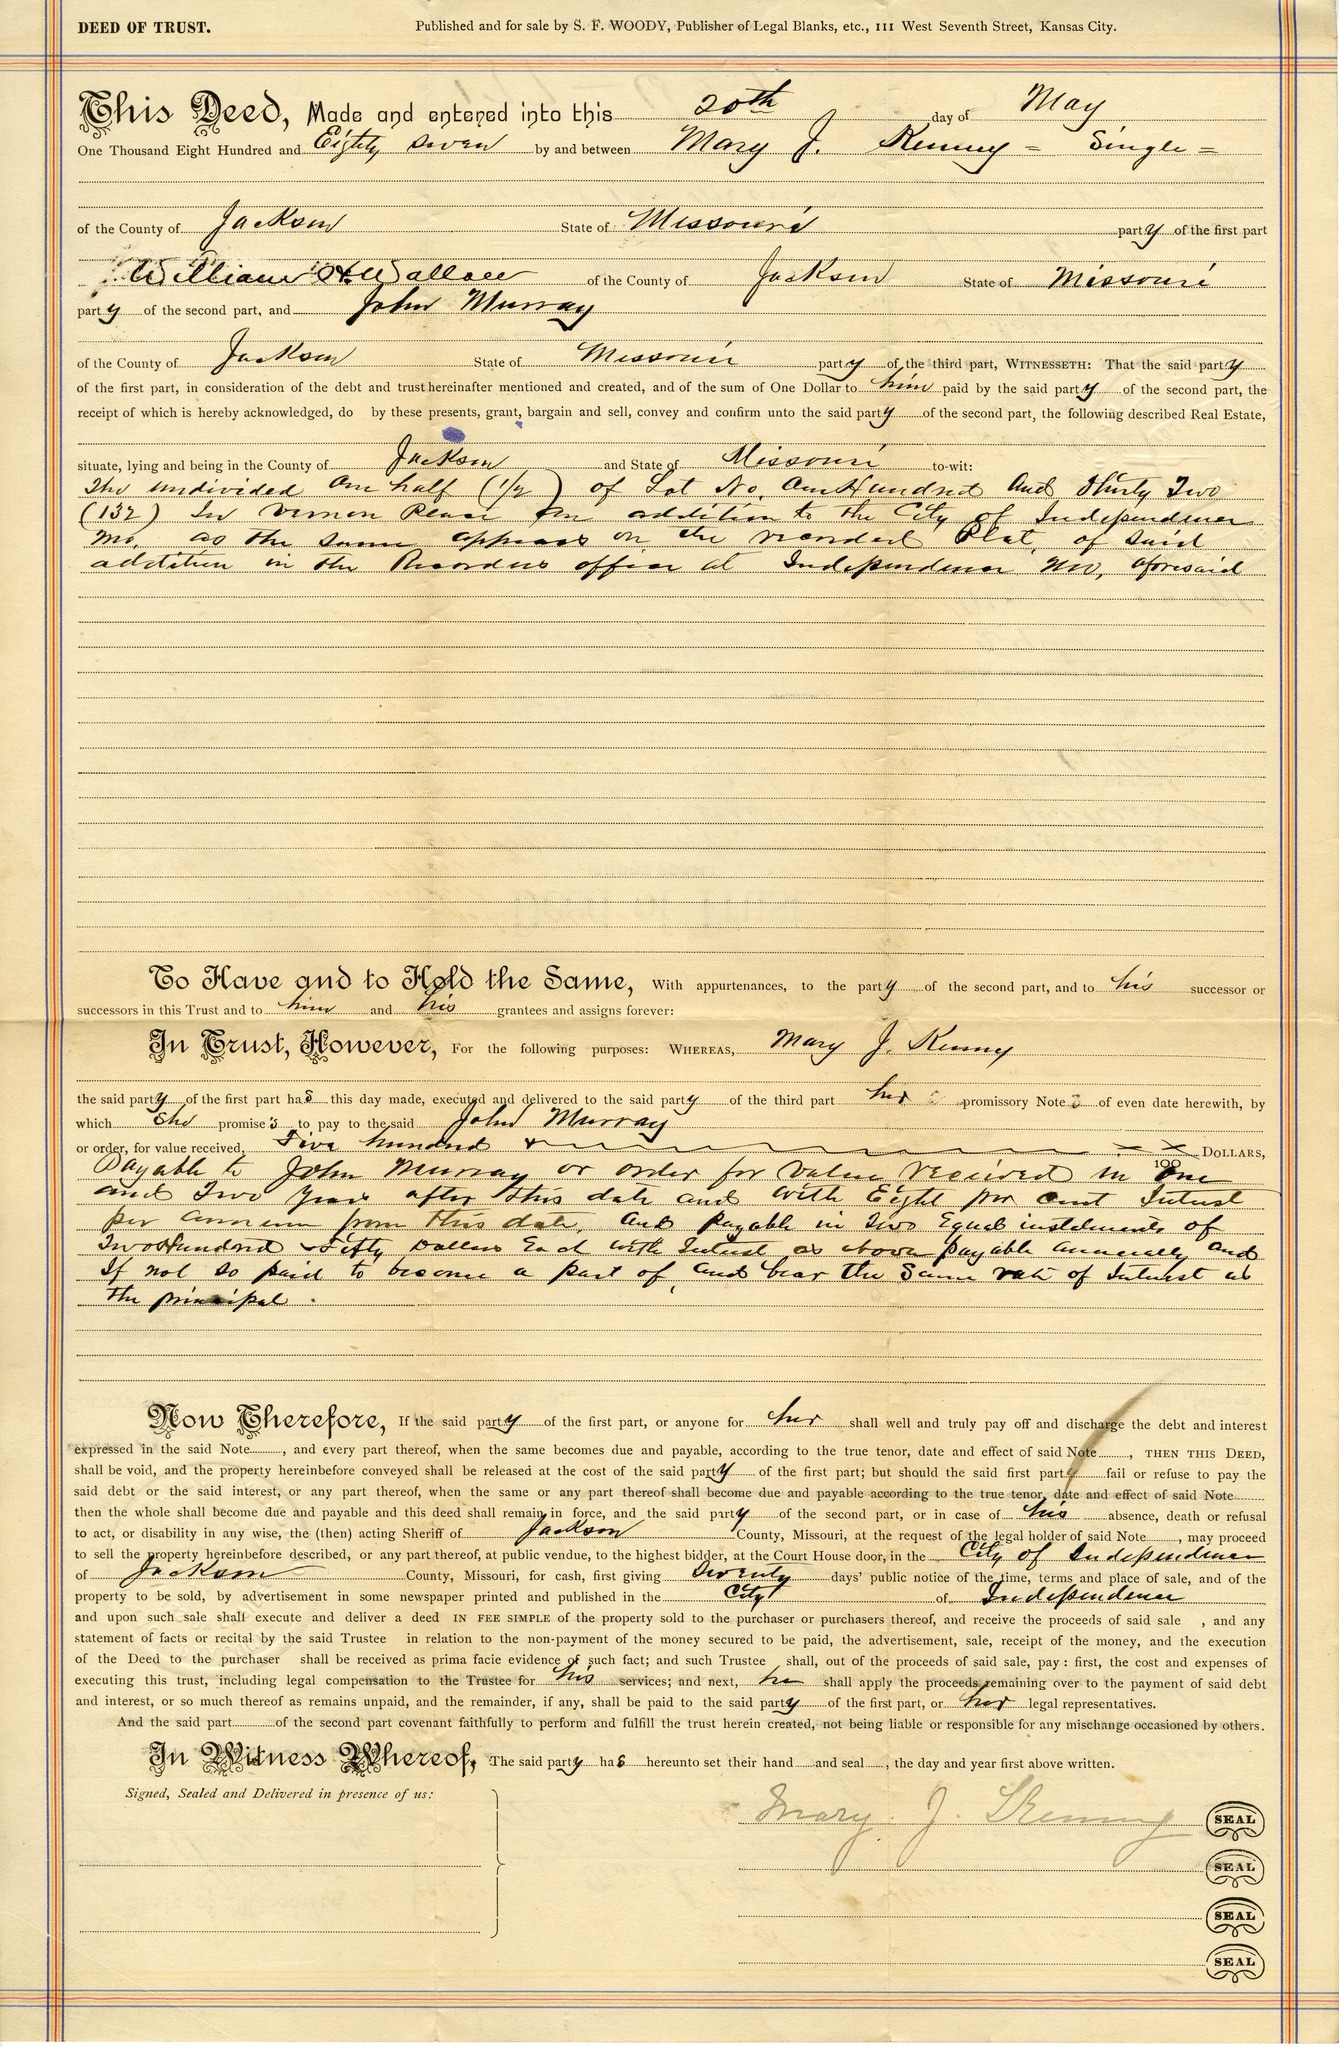 DEED OF TRUST. Published and for sale by S. F. WOODY, Publisher of Legal Blanks, etc., 111 West Seventh Street, Kansas City.
This Deed, Made and entered into this 20th day of May
One Thousand Eight Hundred and Eighty Seven by and between Mary J. Kenny = Single =
of the County of Jackson State of Missouri party of the first part
William H. Wallace of the County of Jackson State of Missouri
party of the second part, and John Murray
of the County of Jackson State of Missouri party of the third part, WITNESSETH: That the said party
of the first part, in consideration of the debt and trust hereinafter mentioned and created, and of the sum of One Dollar to him paid by the said party of the second part, the
receipt of which is hereby acknowledged, do by these presents, grant, bargain and sell, convey and confirm unto the said party of the second part, the following described Real Estate,
situate, lying and being in the County of Jackson and State of Missouri to-wit:
The undivided One half (1/2) of Lot No. One Hundred And Thirty Two
(132) In Vernon Place An addition to the City of Independence
Mo. as the same appears on the recorded Plat, of said
addition in the Recorders office at Independence Mo, aforesaid
To Have and to Hold the Same, With appurtenances, to the party of the second part, and to his successor or
successors in this Trust and to him and his grantees and assigns forever:
In Trust, However, For the following purposes: WHEREAS, Mary J. Kenny
the said party of the first part has this day made, executed and delivered to the said party of the third part her 2 promissory Notes of even date herewith, by
which She promises to pay to the said John Murray
or order, for value received, Five hundred & x x 100 DOLLARS,
Payable to John Murray or order for value received in One
and Two Years after this date and with Eight per cent Interest
per annum from this date, And payable in Two Equal instalments of
Two Hundred & Fifty Dollars Each with Interest as above payable annually and
If not so paid to become a part of, and bear the same rate of Interest as
the principal.
Now Therefore, If the said party of the first part, or anyone for her shall well and truly pay off and discharge the debt and interest
expressed in the said Note, and every part thereof, when the same becomes due and payable, according to the true tenor, date and effect of said Note, THEN THIS DEED,
shall be void, and the property hereinbefore conveyed shall be released at the cost of the said party of the first part; but should the said first party fail or refuse to pay the
said debt or the said interest, or any part thereof, when the same or any part thereof shall become due and payable according to the true tenor, date and effect of said Note
then the whole shall become due and payable and this deed shall remain in force, and the said party of the second part, or in case of his absence, death or refusal
to act, or disability in any wise, the (then) acting Sheriff of Jackson County, Missouri, at the request of the legal holder of said Note, may proceed
to sell the property hereinbefore described, or any part thereof, at public vendue, to the highest bidder, at the Court House door, in the City of Independence
of Jackson County, Missouri, for cash, first giving Twenty days' public notice of the time, terms and place of sale, and of the
property to be sold, by advertisement in some newspaper printed and published in the City of Independence
and upon such sale shall execute and deliver a deed IN FEE SIMPLE of the property sold to the purchaser or purchasers thereof, and receive the proceeds of said sale , and any
statement of facts or recital by the said Trustee in relation to the non-payment of the money secured to be paid, the advertisement, sale, receipt of the money, and the execution
of the Deed to the purchaser shall be received as prima facie evidence of such fact; and such Trustee shall, out of the proceeds of said sale, pay: first, the cost and expenses of
executing this trust, including legal compensation to the Trustee for his services; and next, he shall apply the proceeds remaining over to the payment of said debt
and interest, or so much thereof as remains unpaid, and the remainder, if any, shall be paid to the said party of the first part, or her legal representatives.
And the said part of the second part covenant faithfully to perform and fulfill the trust herein created, not being liable or responsible for any mischange occasioned by others.
In Witness Whereof, The said party has hereunto set their hand and seal, the day and year first above written.
Signed, Sealed and Delivered in presence of us:
Mary J. Kenny SEAL
SEAL
SEAL
SEAL